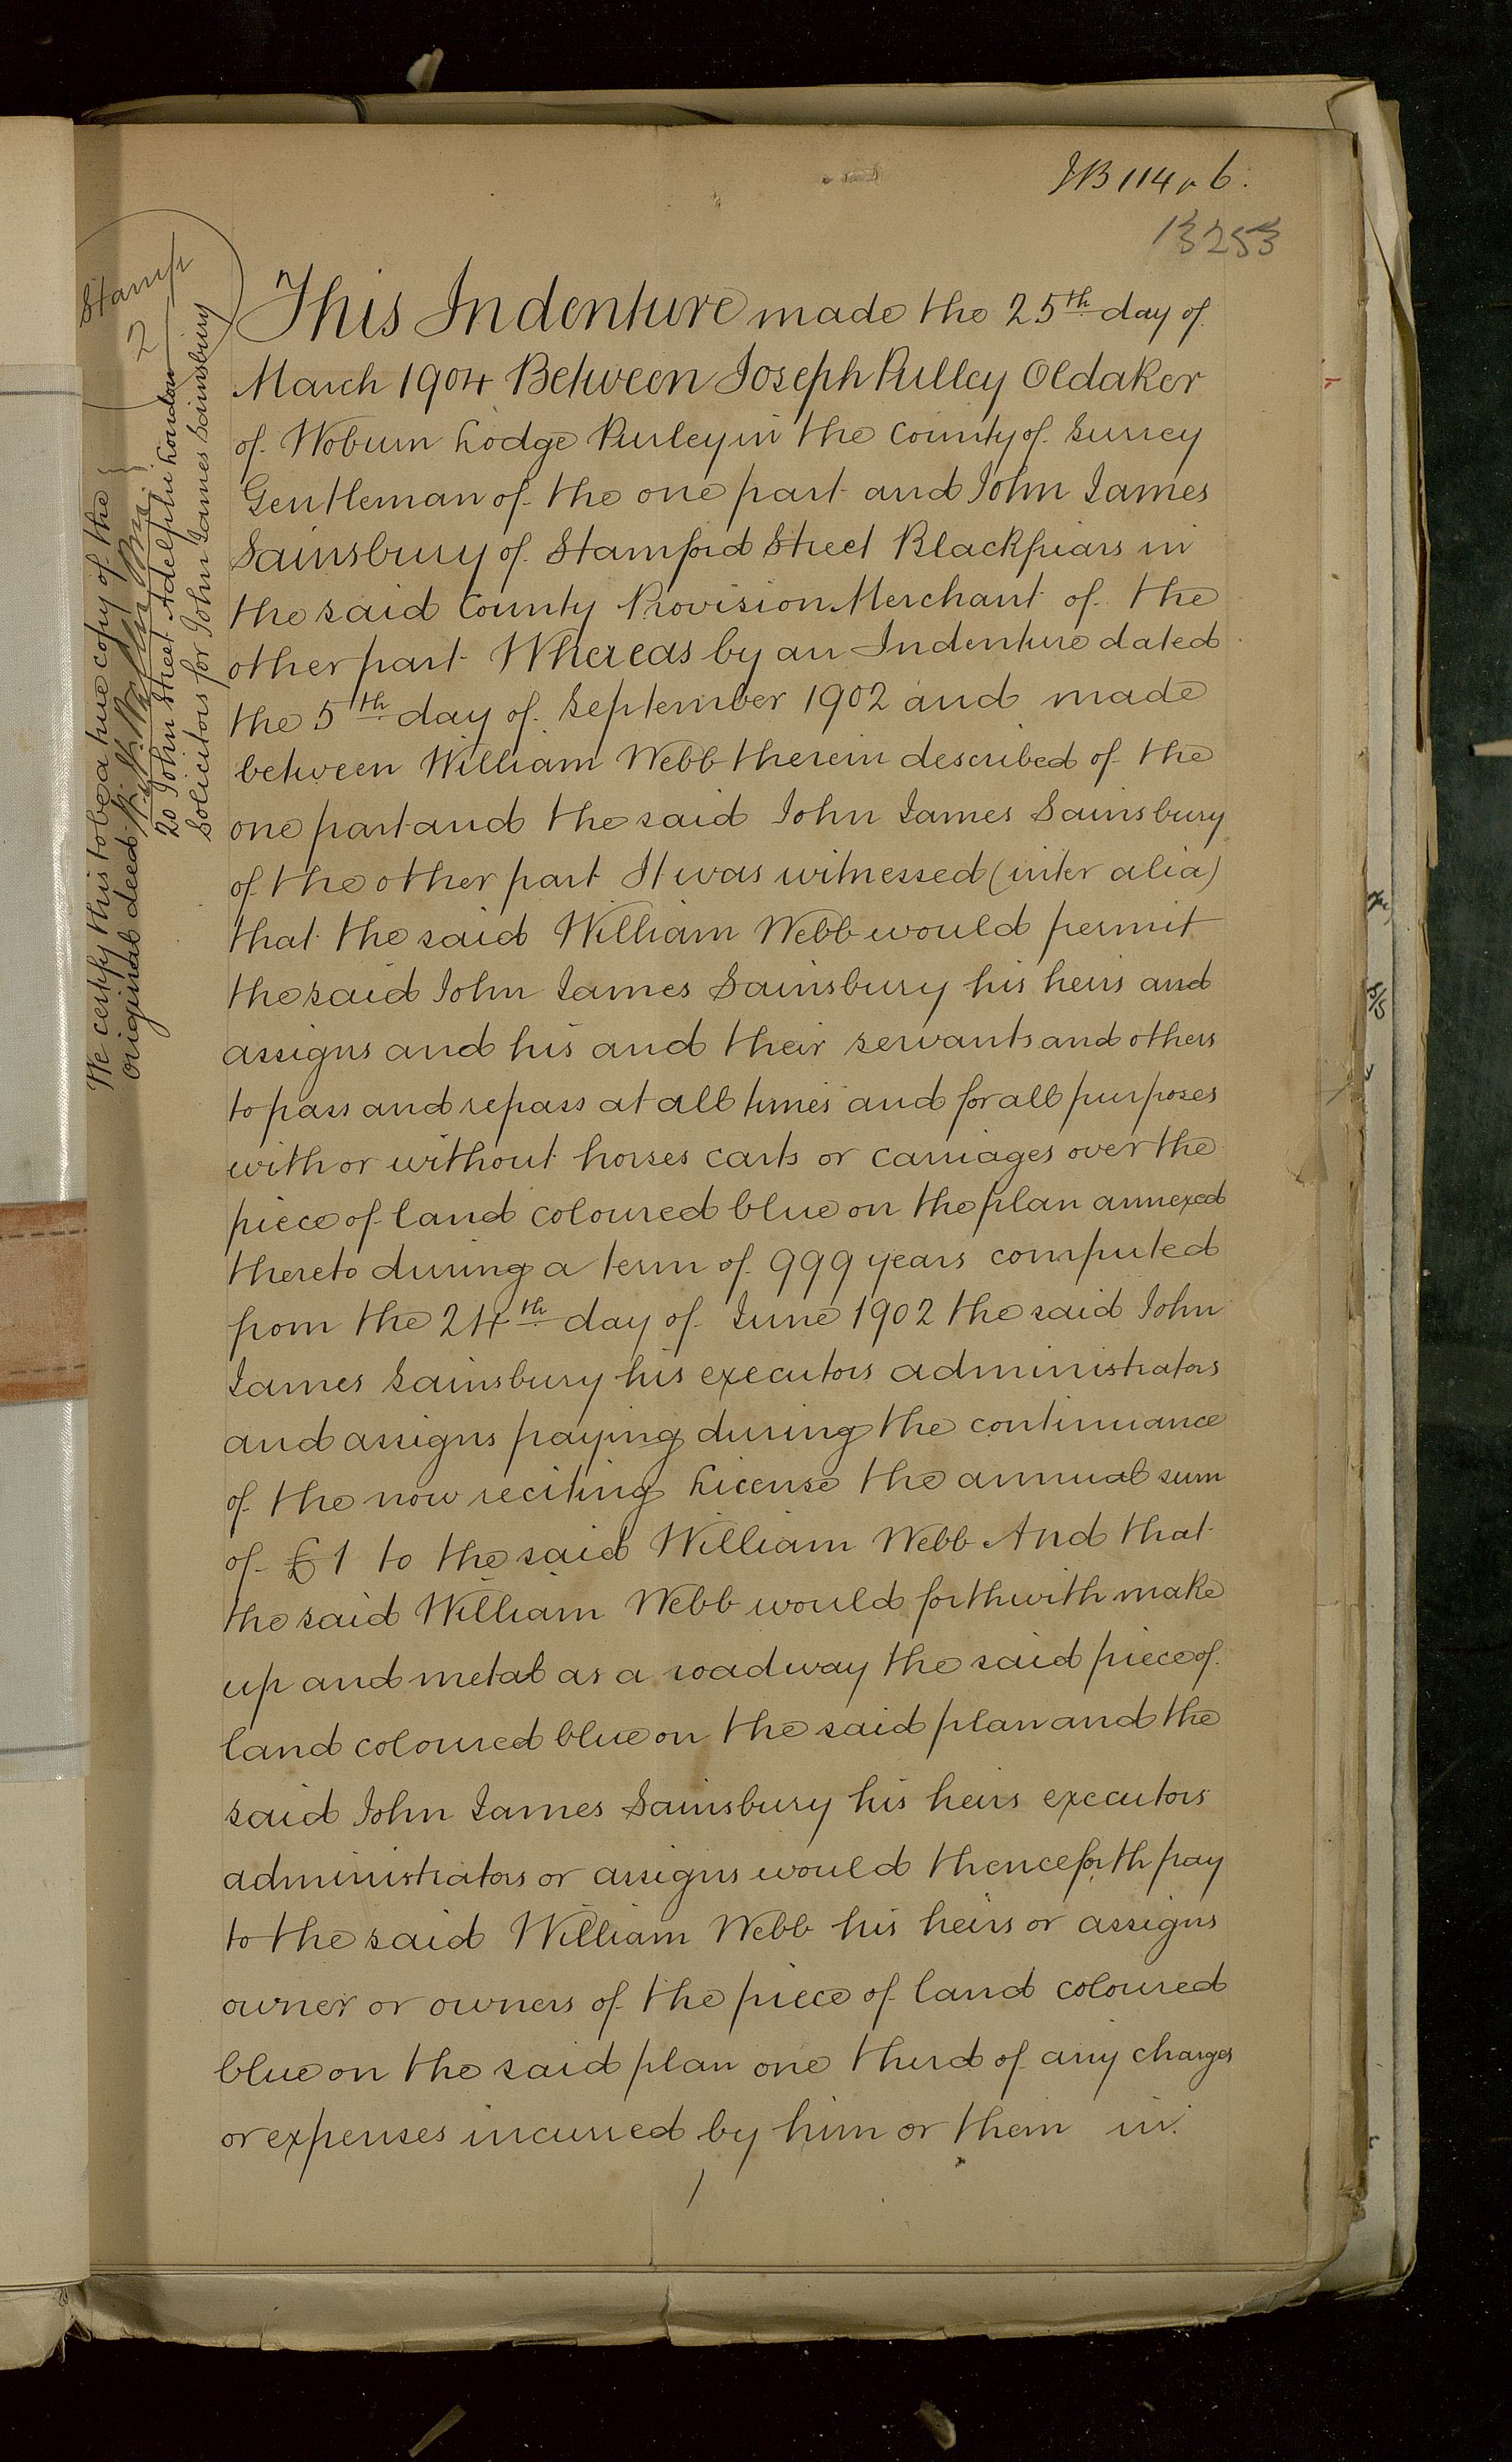 JB 114
6.
13253
Stamp
2
We certify this to be a true copy of the
original deed
20 John Street Adelphi London
Solicitors for John James Sainsbury
This Indenture made the 25th day of
March 1904 Between Joseph Pulley Oldaker
of Woburn Lodge Purley in the County of Surrey
Gentleman of the one part and John James
Sainsbury of Stamford Street Blackfriars in
the said County Provision Merchant of the
other part Whereas by an Indenture dated
the 5th day of September 1902 and made
between William Webb therein described of the
one part and the said John James Sainsbury
of the other part It was witnessed (inter alia)
that the said William Webb would permit
the said John James Sainsbury his heirs and
assigns and his and their servants and others
to pass and repass at all times and for all purposes
with or without horses carts or carriages over the
piece of land coloured blue on the plan annexed
thereto during a term of 999 years computed
from the 24th day of June 1902 the said John
James Sainsbury his executors administrators
and assigns paying during the continuance
of the now reciting License the annual sum
of £1 to the said William Webb And that
the said William Webb would forthwith make
up and metal as a roadway the said piece of
land coloured blue on the said plan and the
said John James Sainsbury his heirs executors
administrators or assigns would thenceforth pay
to the said William Webb his heirs or assigns
owner or owners of the piece of land coloured
blue on the said plan one third of any charges
or expenses incurred by him or them in